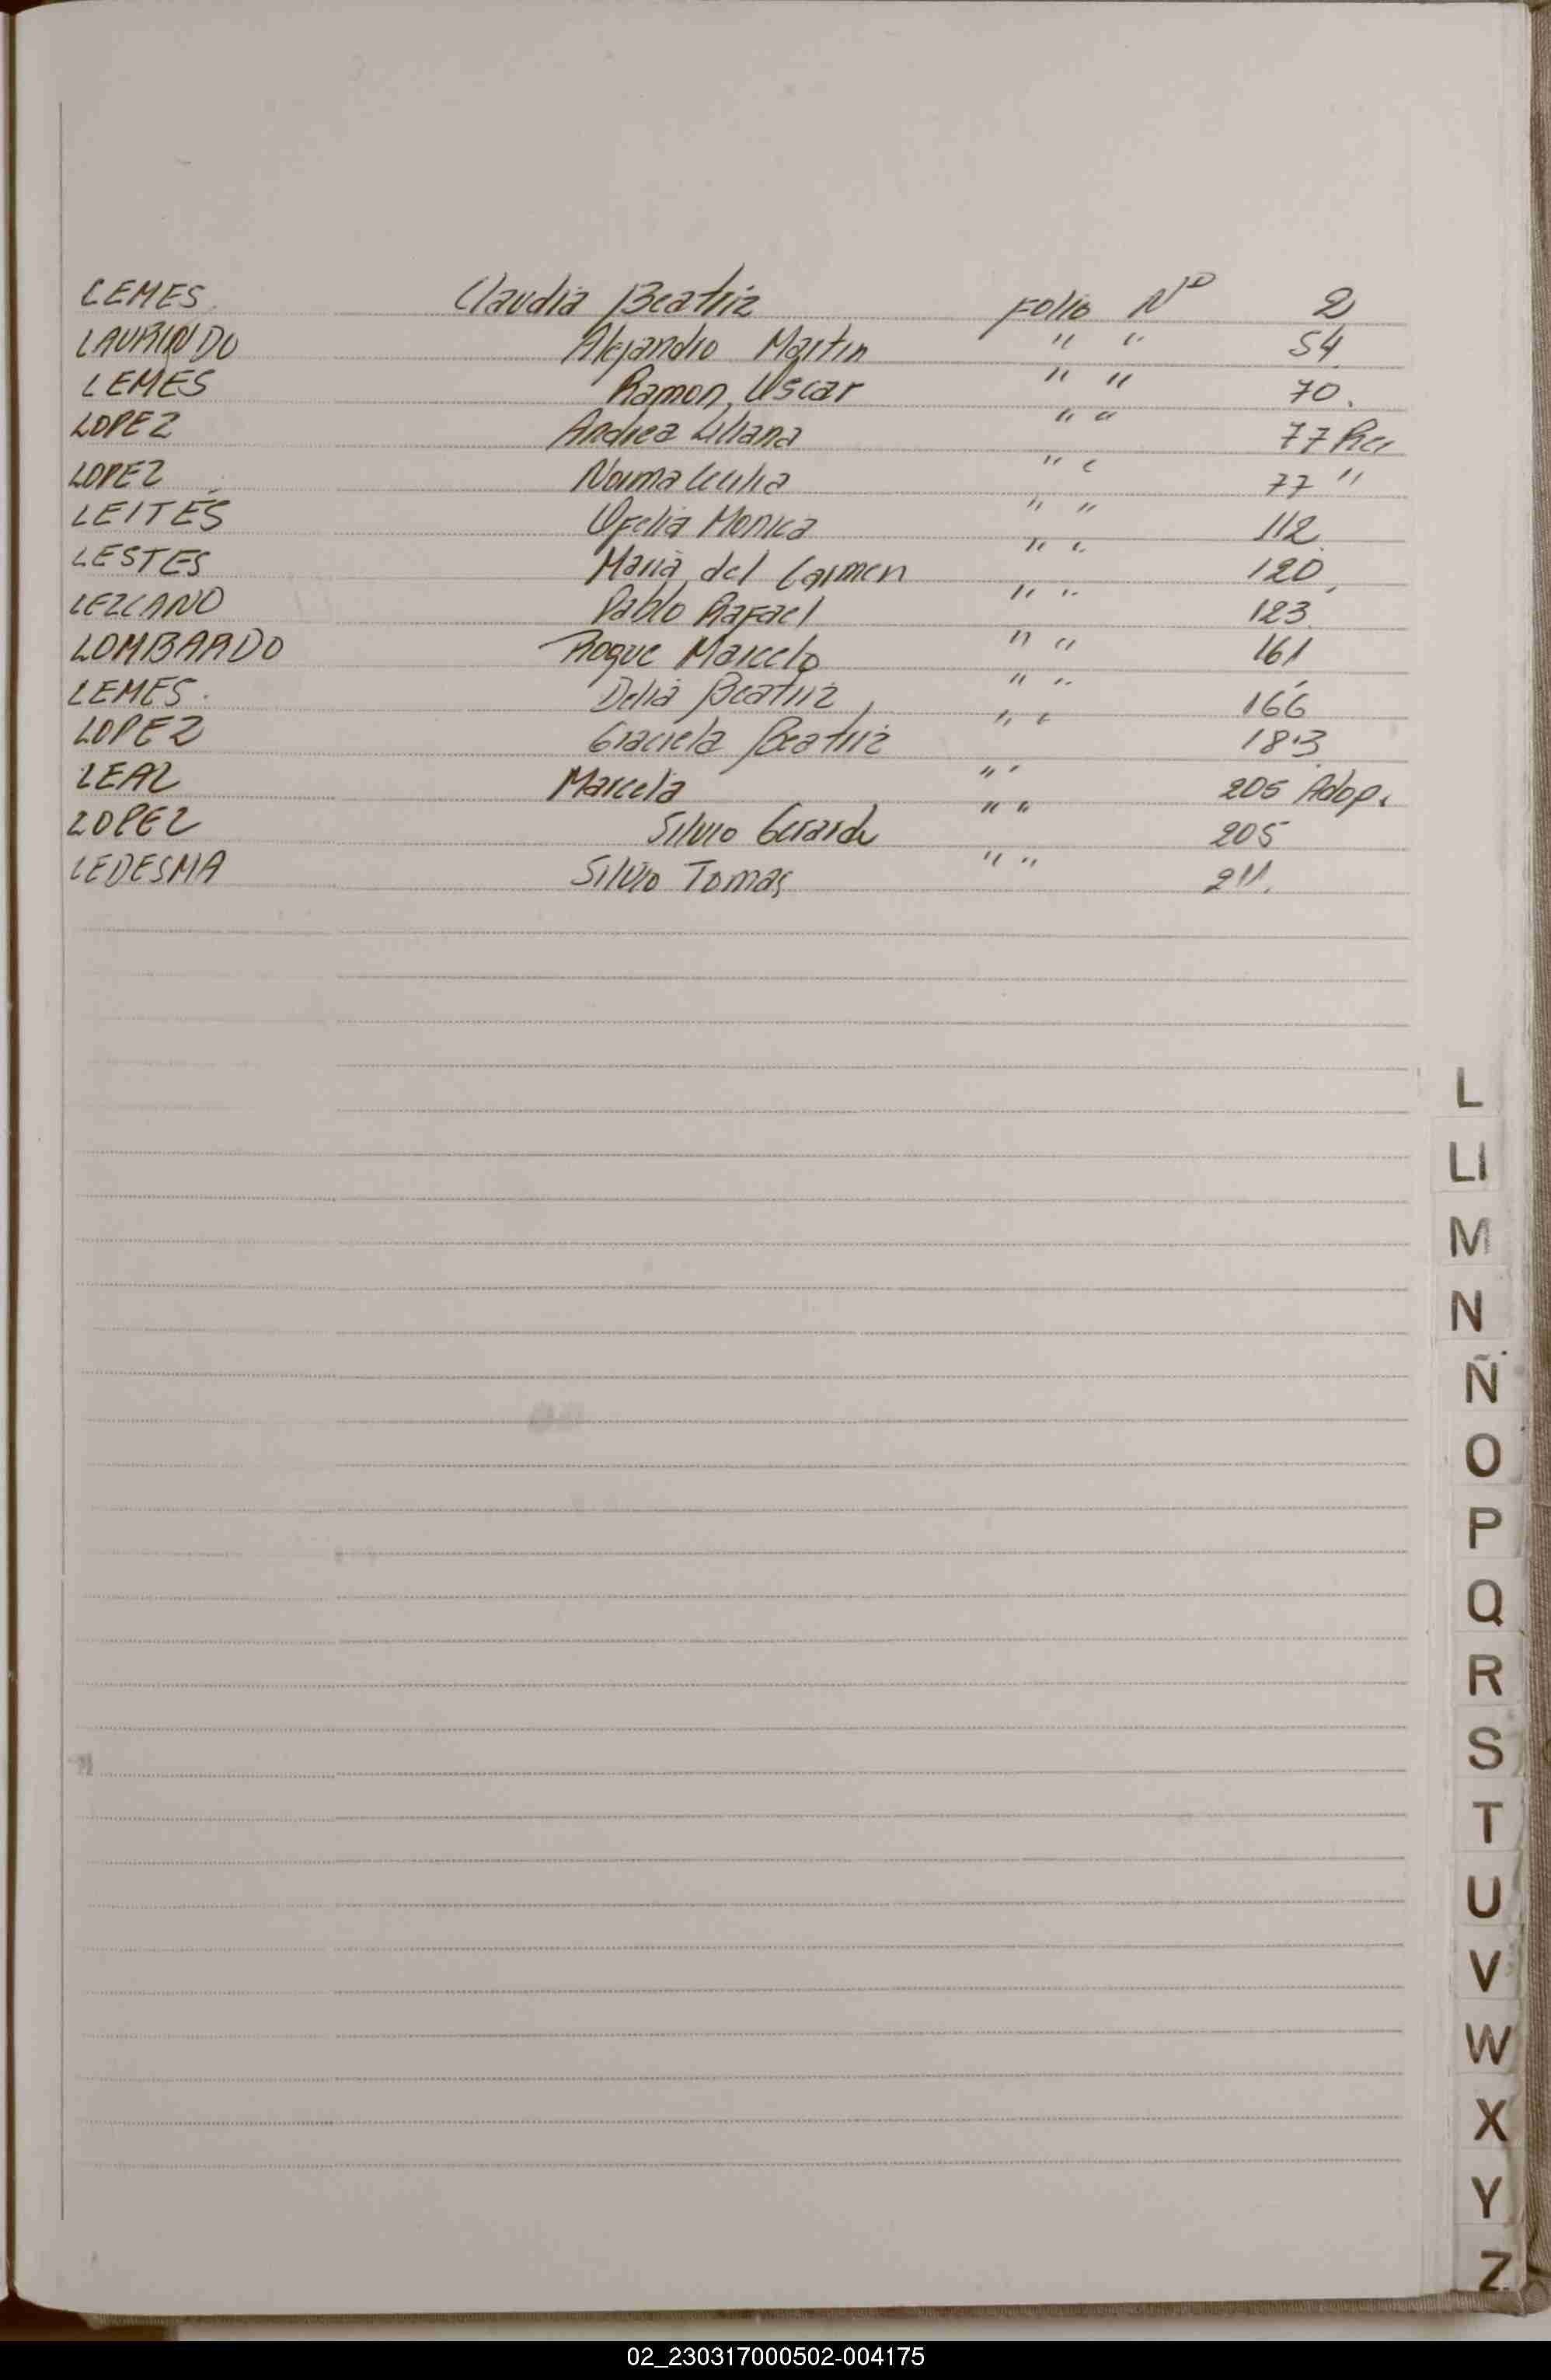 LEMES Claudia Beatriz Folio Nº 2
LAURINDO Alejandro Martin " " 54
LEMES Ramon, Oscar " " 70.
LOPEZ Andrea Liliana " " 77 Rec
LOPEZ Norma Cecilia " " 77 "
LEITES Ofelia Monica " " 112.
LESTES Maria del Carmen " " 120.
LEZCANO Pablo Rafael " " 123.
LOMBARDO Roque Marcelo " " 161
LEMES. Delia Beatriz, " " 166
LOPEZ Graciela Beatriz " " 183.
LEAL Marcela " " 205 Adop.
LOPEZ Silvio Gerardo " " 205
LEDESMA Silvio Tomas " " 211.
L
Ll
M
N
Ñ
O
P
Q
R
S
T
U
V
W
X
Y
Z
02_230317000502-004175